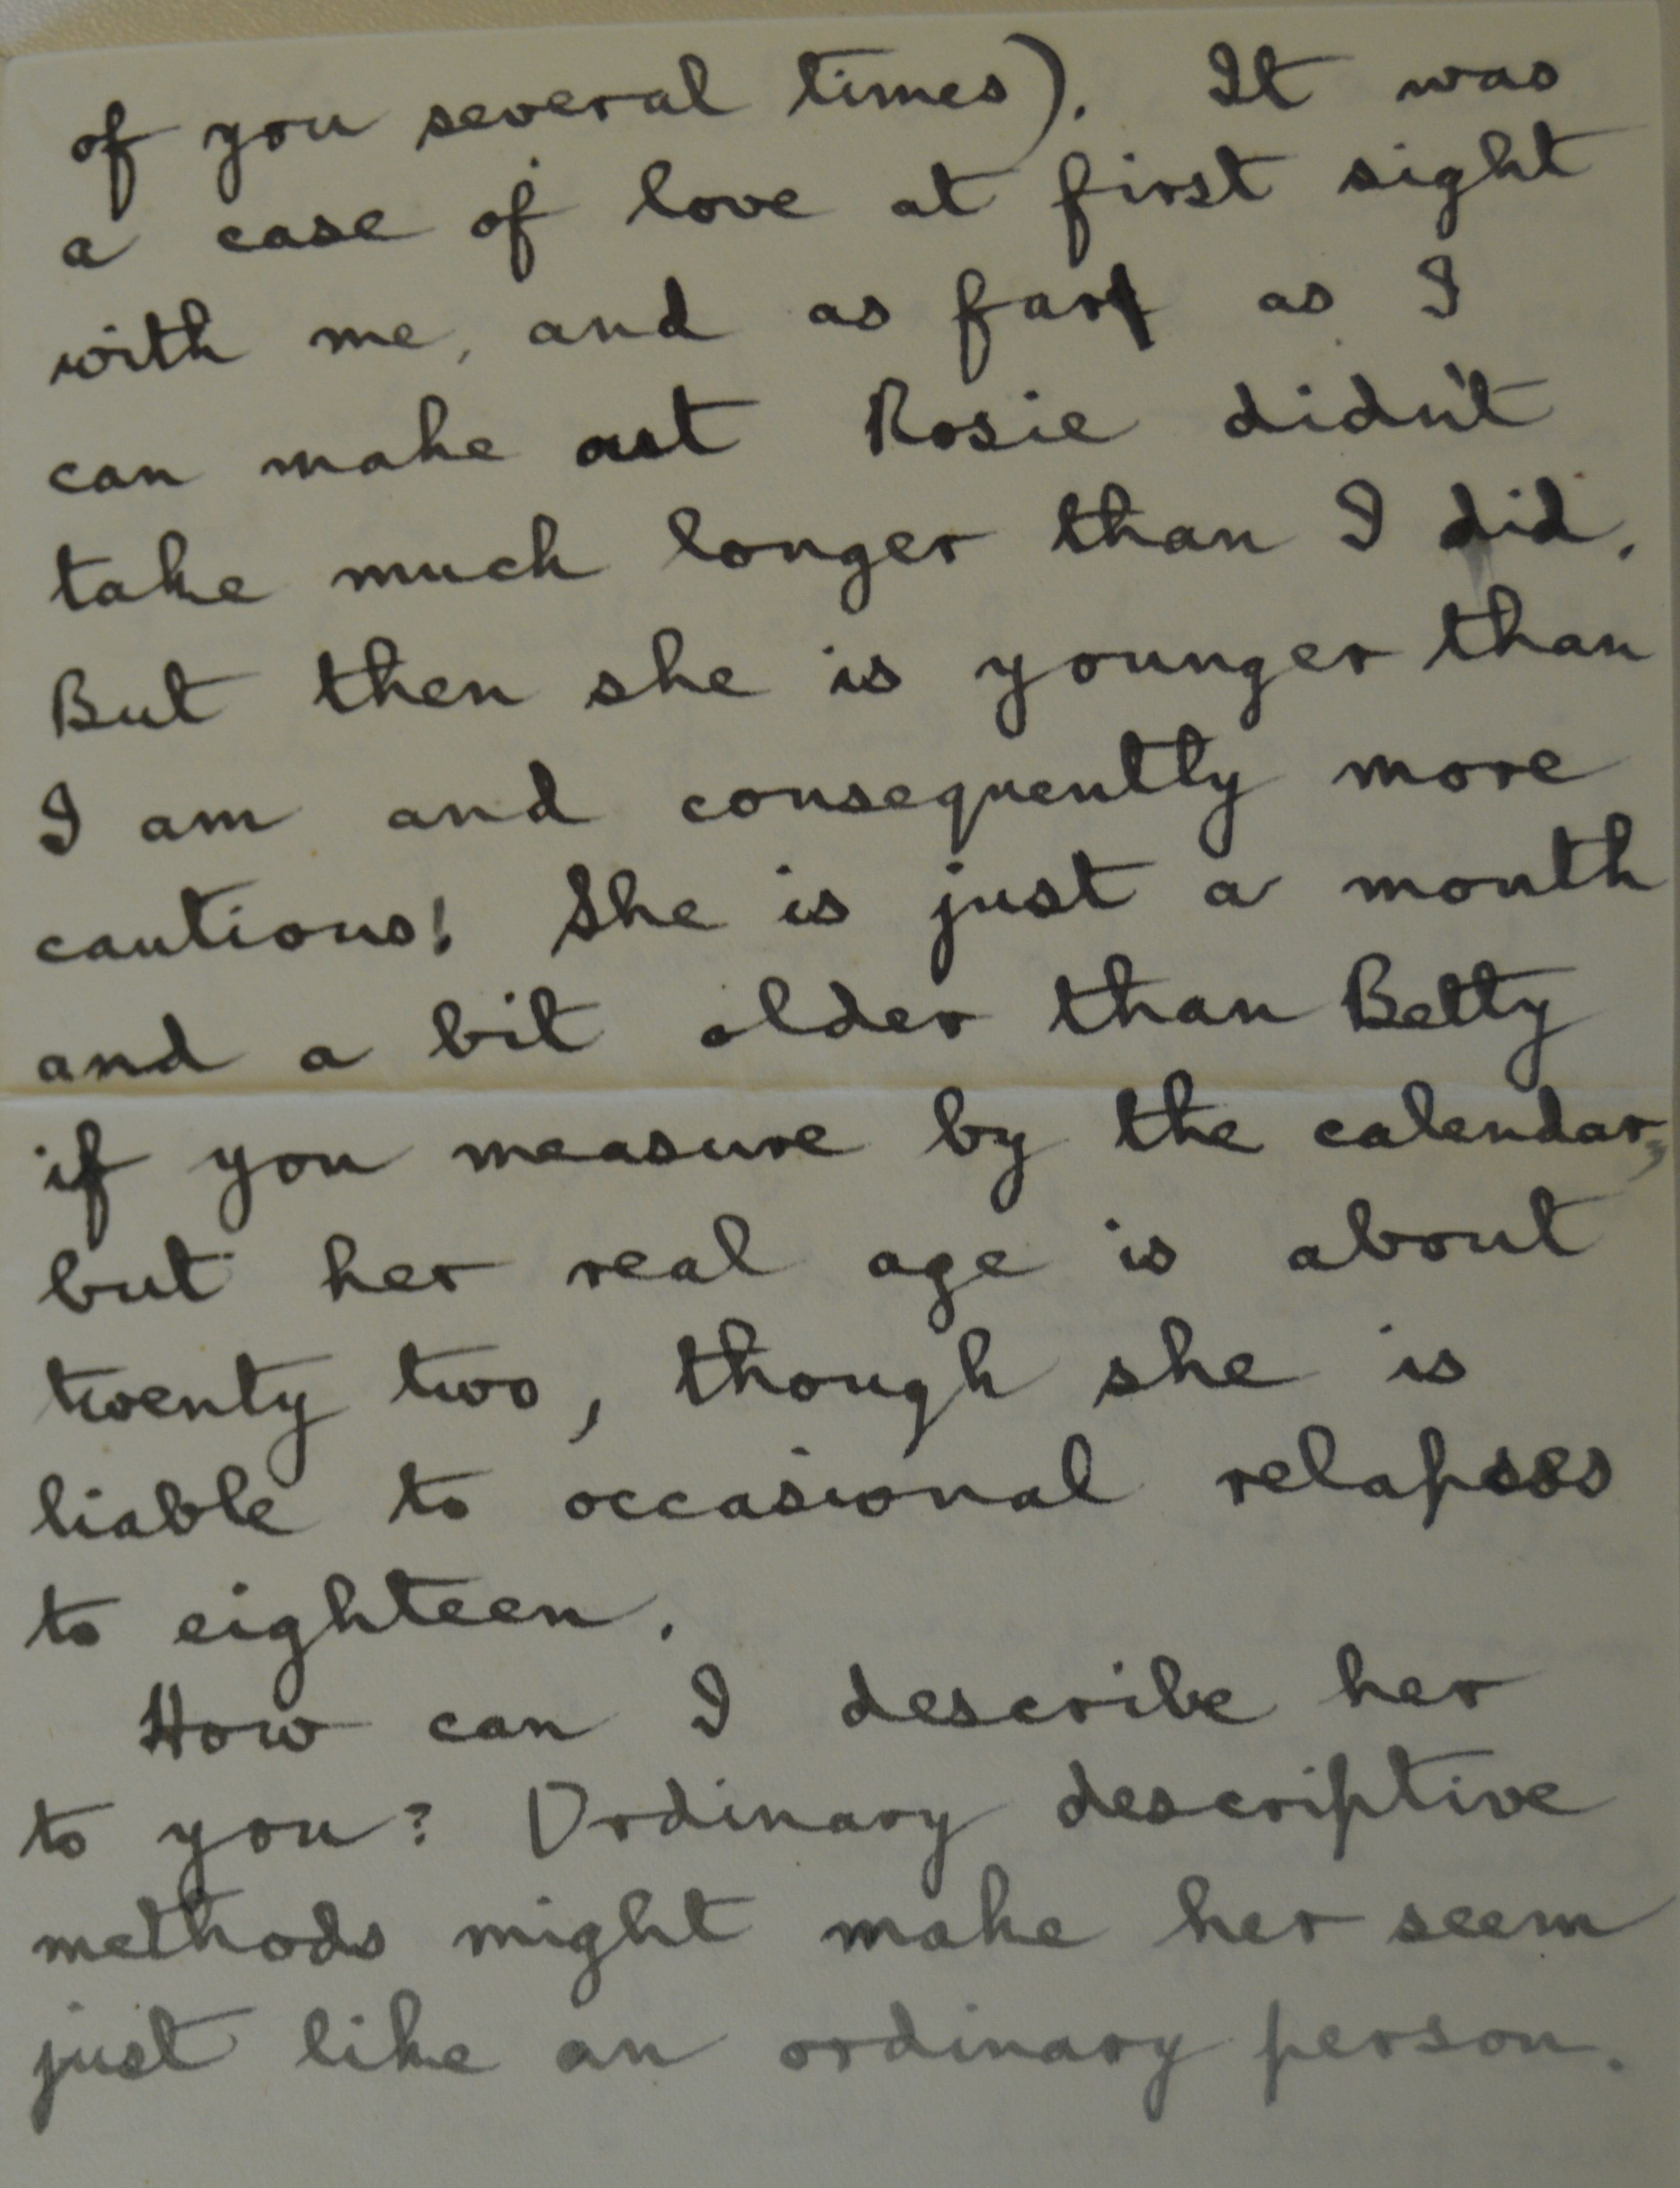 of you several times). It was
a case of love at first sight
with me, and as far as I
can make out Rosie didn't
take much longer than I did.
But then she is younger than
I am and consequently more
cautious! She is just a month
and a bit older than Betty
if you measure by the calendar,
but her real age is about
twenty two, though she is
liable to occasional relapses
to eighteen.
How can I describe her
to you? Ordinary descriptive
methods might make her seem
just like an ordinary person.